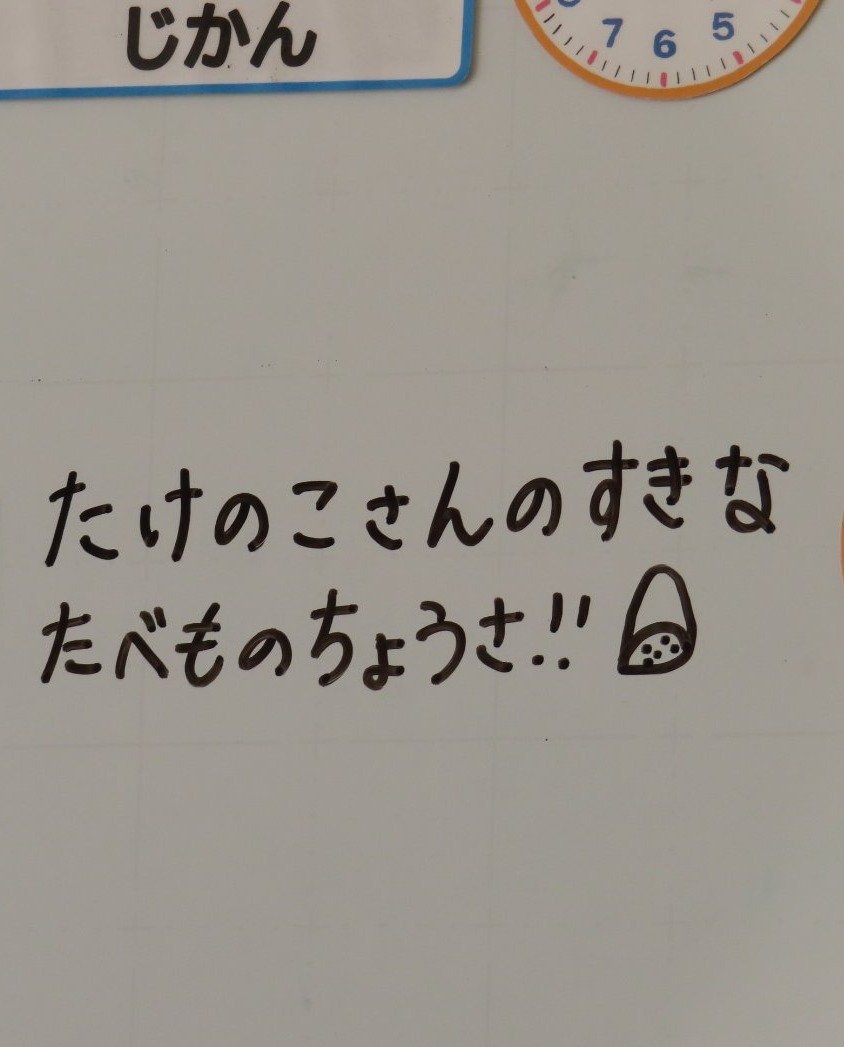 じかん
7 6 5
たけのこさんのすきな
たべものちょうさ!!